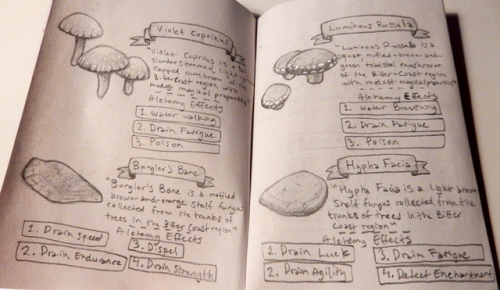 Violet Coprinus
"Violet Coprinus is a
slender-stemmed, light
capped mushroom
Bitter Coast region with
modest magical properties"
Alchemy Effects
1. Water Walking
2. Drain Fatigue
3. Poison
Bungler's Bane
"Bungler's Bane is a mottled
brown-and-orange shelf fungus
collected from the trunks of
trees in the Bitter Coast region"
Alchemy Effects
1. Drain Speed
2. Drain Endurance
3. Dispel
4. Drain Strength
Luminous Russula
"Luminous Russula is a
squat, mottled-brown-and-
green toadstool mushroom
of the Bitter Coast region
with modest magical properties"
Alchemy Effects
1. Water Breathing
2. Drain Fatigue
3. Poison
Hypha Facia
"Hypha Facia is a light brown
Shelf fungus collected from the
trunks of trees in the Bitter
Coast region"
Alchemy Effects
1. Drain Luck
2. Drain Agility
3. Drain Fatigue
4. Detect Enchantment